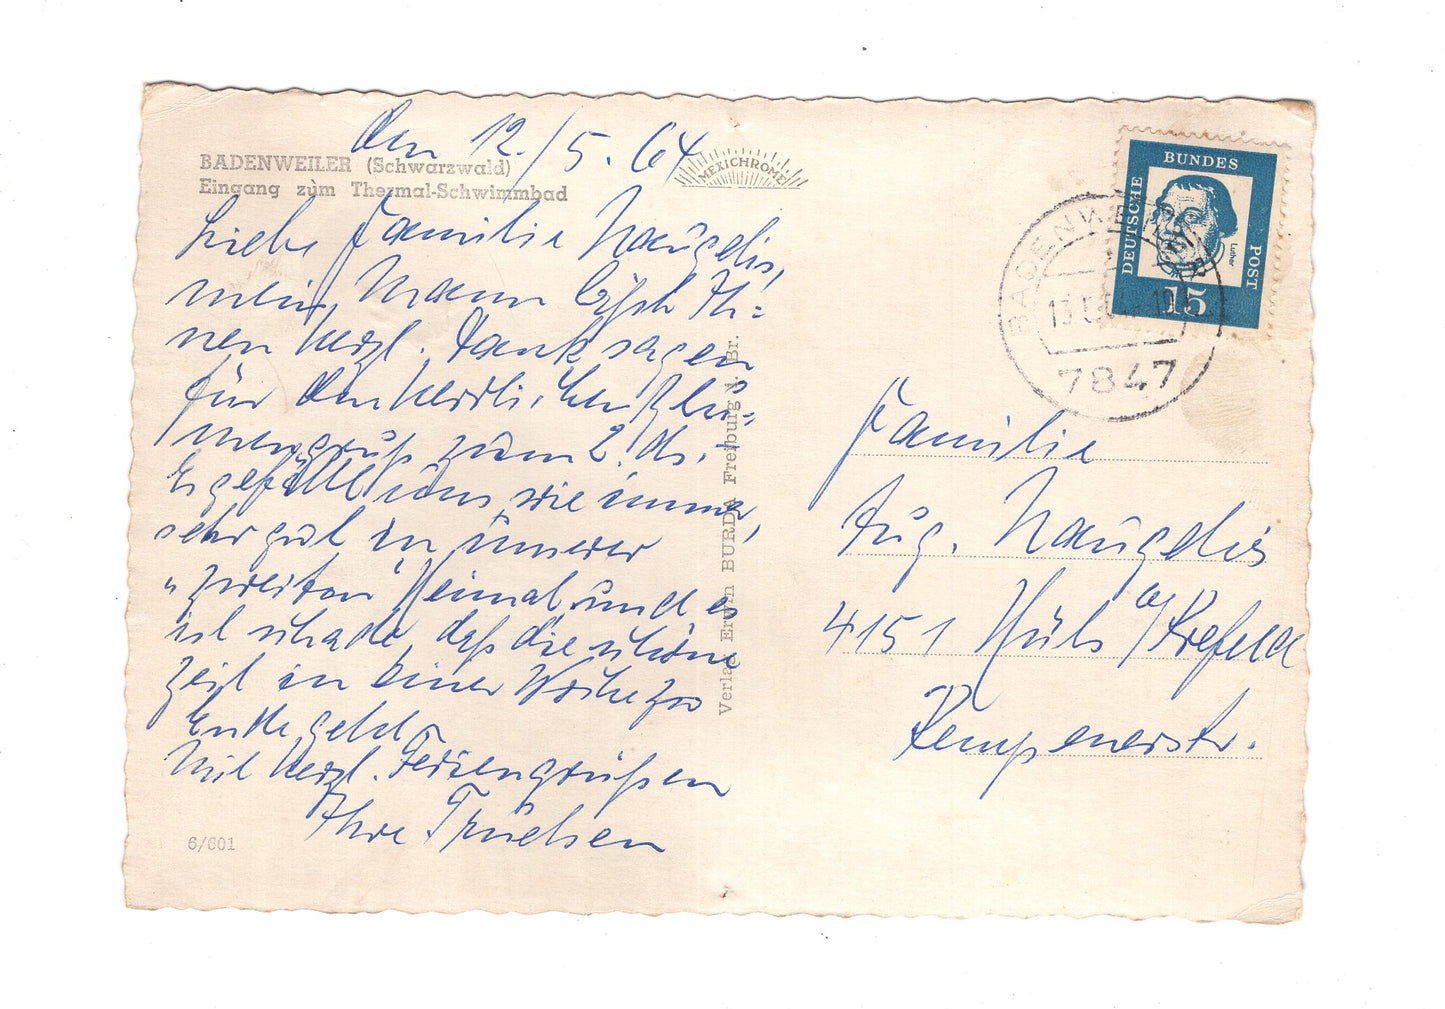 den 12./5.64
BADENWEILER (Schwarzwald)
Eingang zum Thermal-Schwimmbad
MEXICHROME
Liebe Familie Naugdis,
mein Mann läßt Ih=
nen herzl. Dank sagen
für den herrlichen Blu=
mengruß zum 2. ds.
Es gefällt uns, wie immer,
sehr gut in unserer
"zweiten" Heimat und es
ist schade, daß die schöne
Zeit in einer Woche zu
Ende geht.
Mit herzl. Feriengrüßen
Ihre Truelsen
6/601
Verlag Erwin BURDA Freiburg i. Br.
DEUTSCHE
BUNDES
POST
Luther
15
BADENWEILER
7847
Familie
Aug. Naugdis
4151 Hüls b/Krefeld
Kempenerstr.